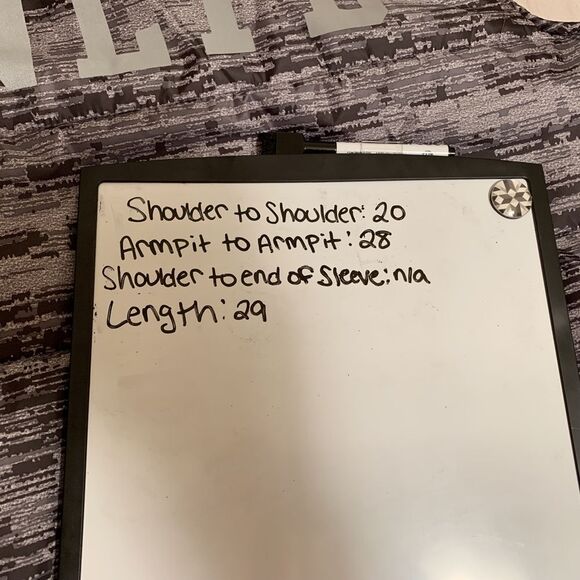 Shoulder to Shoulder: 20
Armpit to Armpit: 28
Shoulder to end of Sleeve: n/a
Length: 29